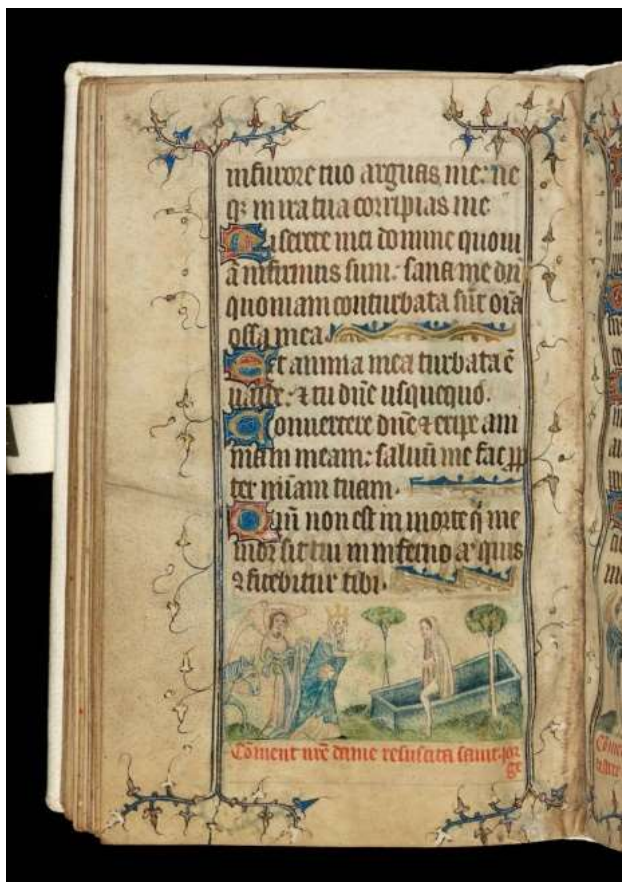 in furore tuo arguas me: ne
q; in ira tua corripias me
Miserere mei domine quoni
am infirmus sum: sana me dne
quoniam conturbata sūt oīa
ossa mea.
Et anima mea turbata ē
valde: ⁊ tu dñe usquequo.
Convertere dñe ⁊ eripe ani
mam meam: salvū me fac ꝓp
ter mīam tuam.
Qm̄ non est in morte q̄ me
mor sit tui in inferno aūt quis
ⁿfitebitur tibi.
Cōment nr̄e dame resuscita saint jor
ge